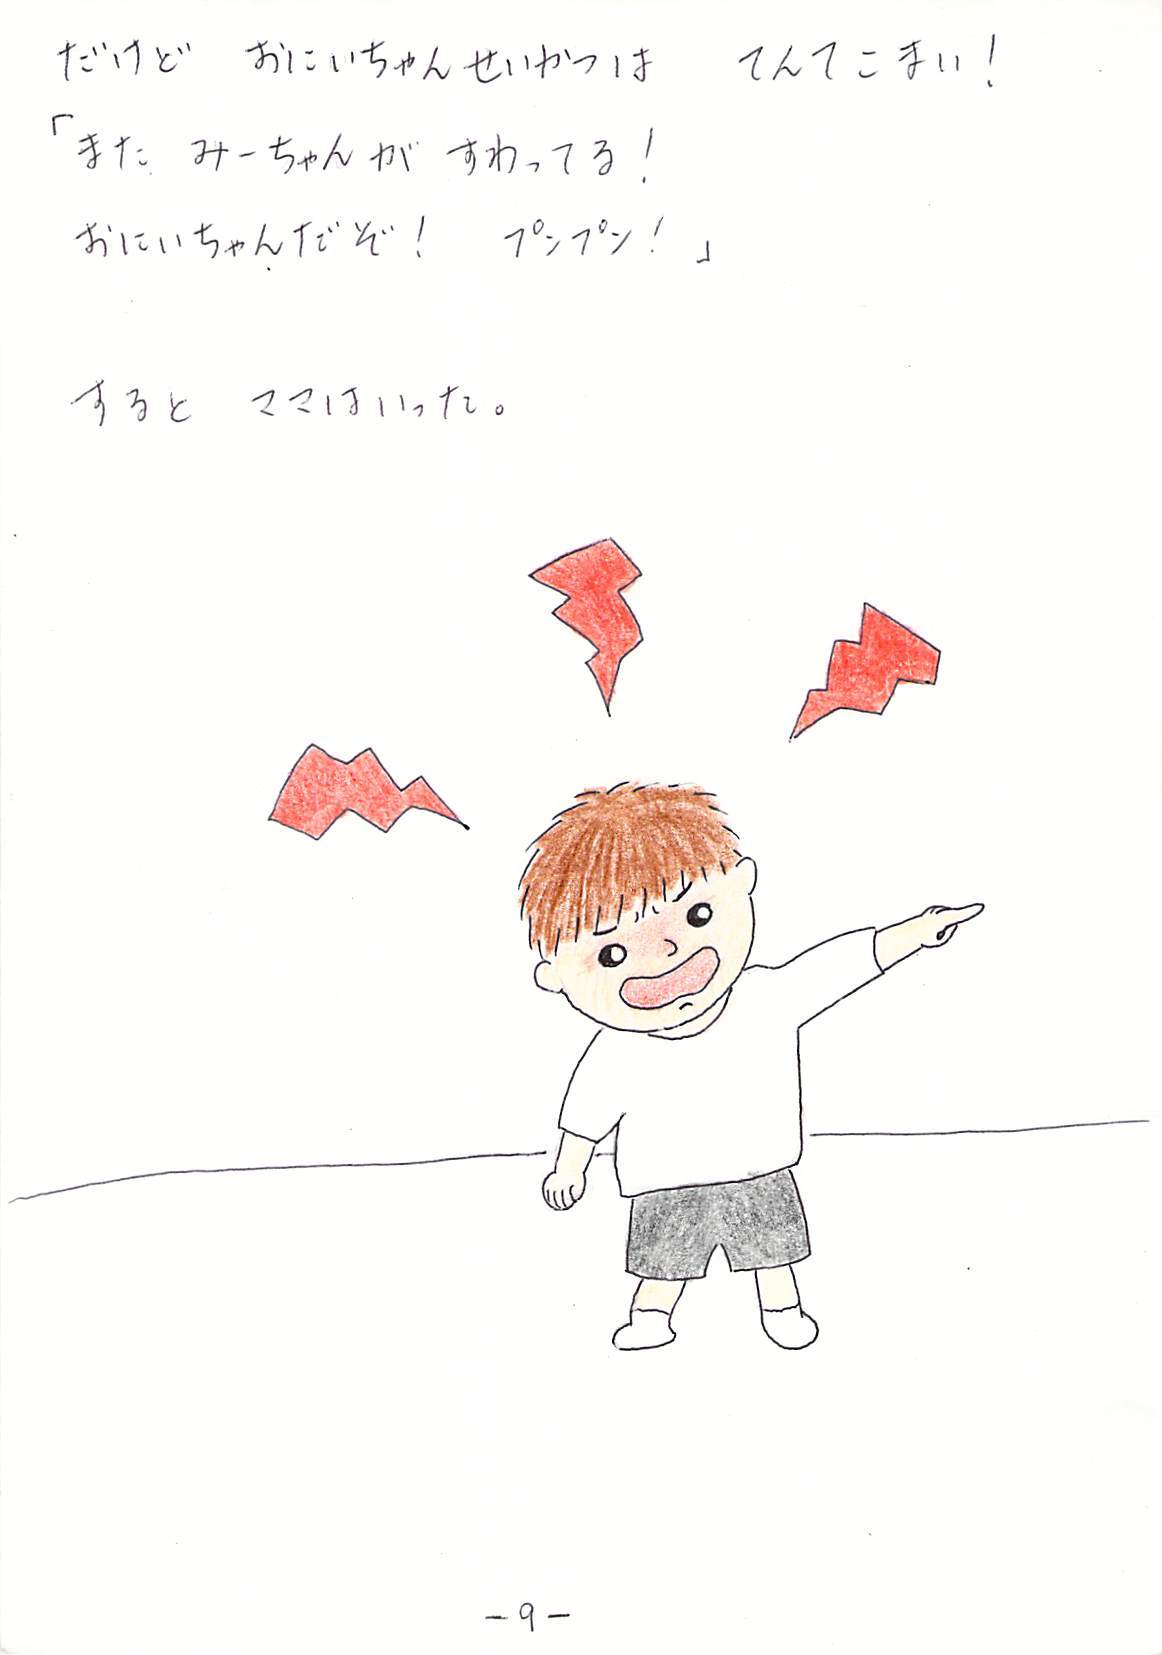 だけど　おにいちゃんせいかつは　てんてこまい！
「また　みーちゃんが　すわってる！
おにいちゃんだぞ！　プンプン！」
すると　ママはいった。
-9-